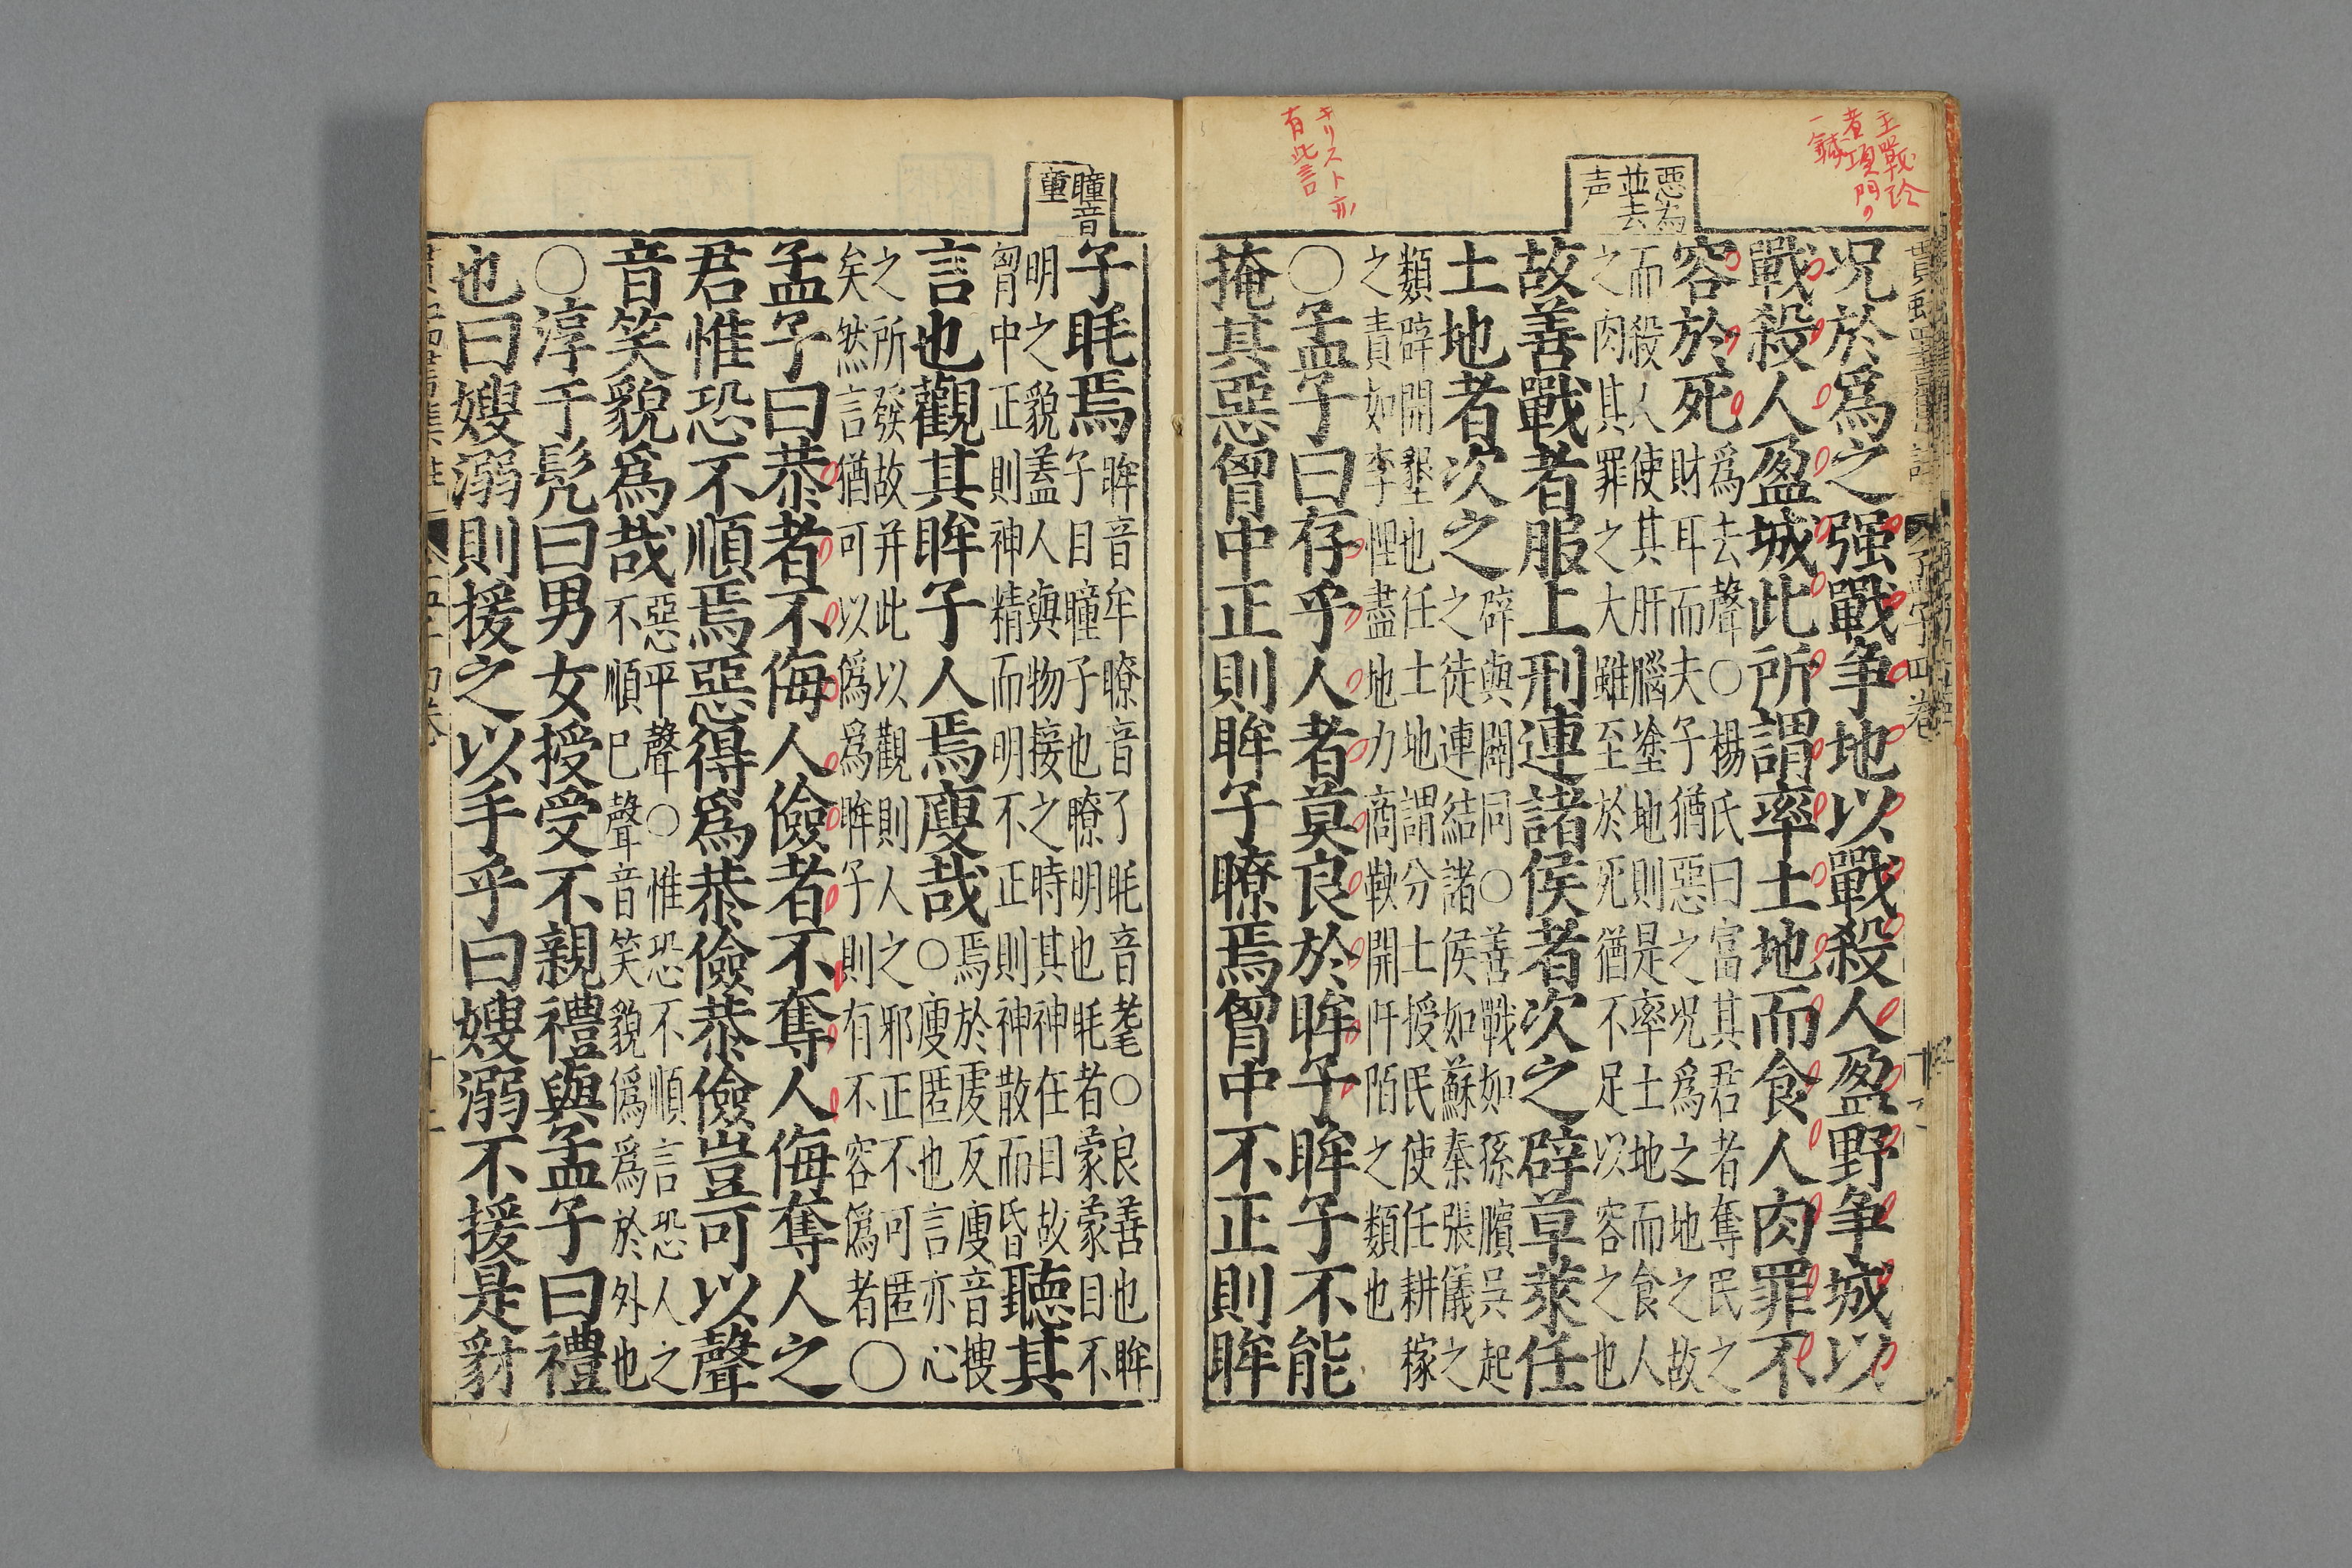 主戰論
者頂門ノ
一鍼
惡為
並去
声
キリスト亦
有此言
況於爲之强戰争地以戰殺人盈野争城以
戰殺人盈城此所謂率土地而食人肉罪不
容於死
爲去聲○楊氏曰富其君者奪民之
財耳而夫子猶惡之況爲之地之故
而殺人使其肝腦塗地則是率土地而食人
之肉其罪之大雖至於死猶不足以容之也
故善戰者服上刑連諸侯者次之辟草萊任
土地者次之
辟與闢同○善戰如孫臏吳起
之徒連結諸侯如蘇秦張儀之
類辟開墾也任土地謂分土授民使任耕稼
之責如李悝盡地力商鞅開阡陌之類也
○孟子曰存乎人者莫良於眸子眸子不能
掩其惡胷中正則眸子瞭焉胷中不正則眸
瞳音
童
子眊焉
眸音牟瞭音了眊音耄○良善也眸
子目瞳子也瞭明也眊者蒙蒙目不
明之貌蓋人與物接之時其神在目故
胷中正則神精而明不正則神散而昏
聽其
言也觀其眸子人焉廋哉
焉於虔反廋音搜
○廋匿也言亦心
之所發故并此以觀則人之邪正不可匿
矣然言猶可以僞爲眸子則有不容僞者
○
孟子曰恭者不侮人儉者不奪人侮奪人之
君惟恐不順焉惡得爲恭儉恭儉豈可以聲
音笑貌爲哉
惡平聲○惟恐不順言恐人之
不順已聲音笑貌僞爲於外也
○淳于髡曰男女授受不親禮與孟子曰禮
也曰嫂溺則援之以手乎曰嫂溺不援是豺